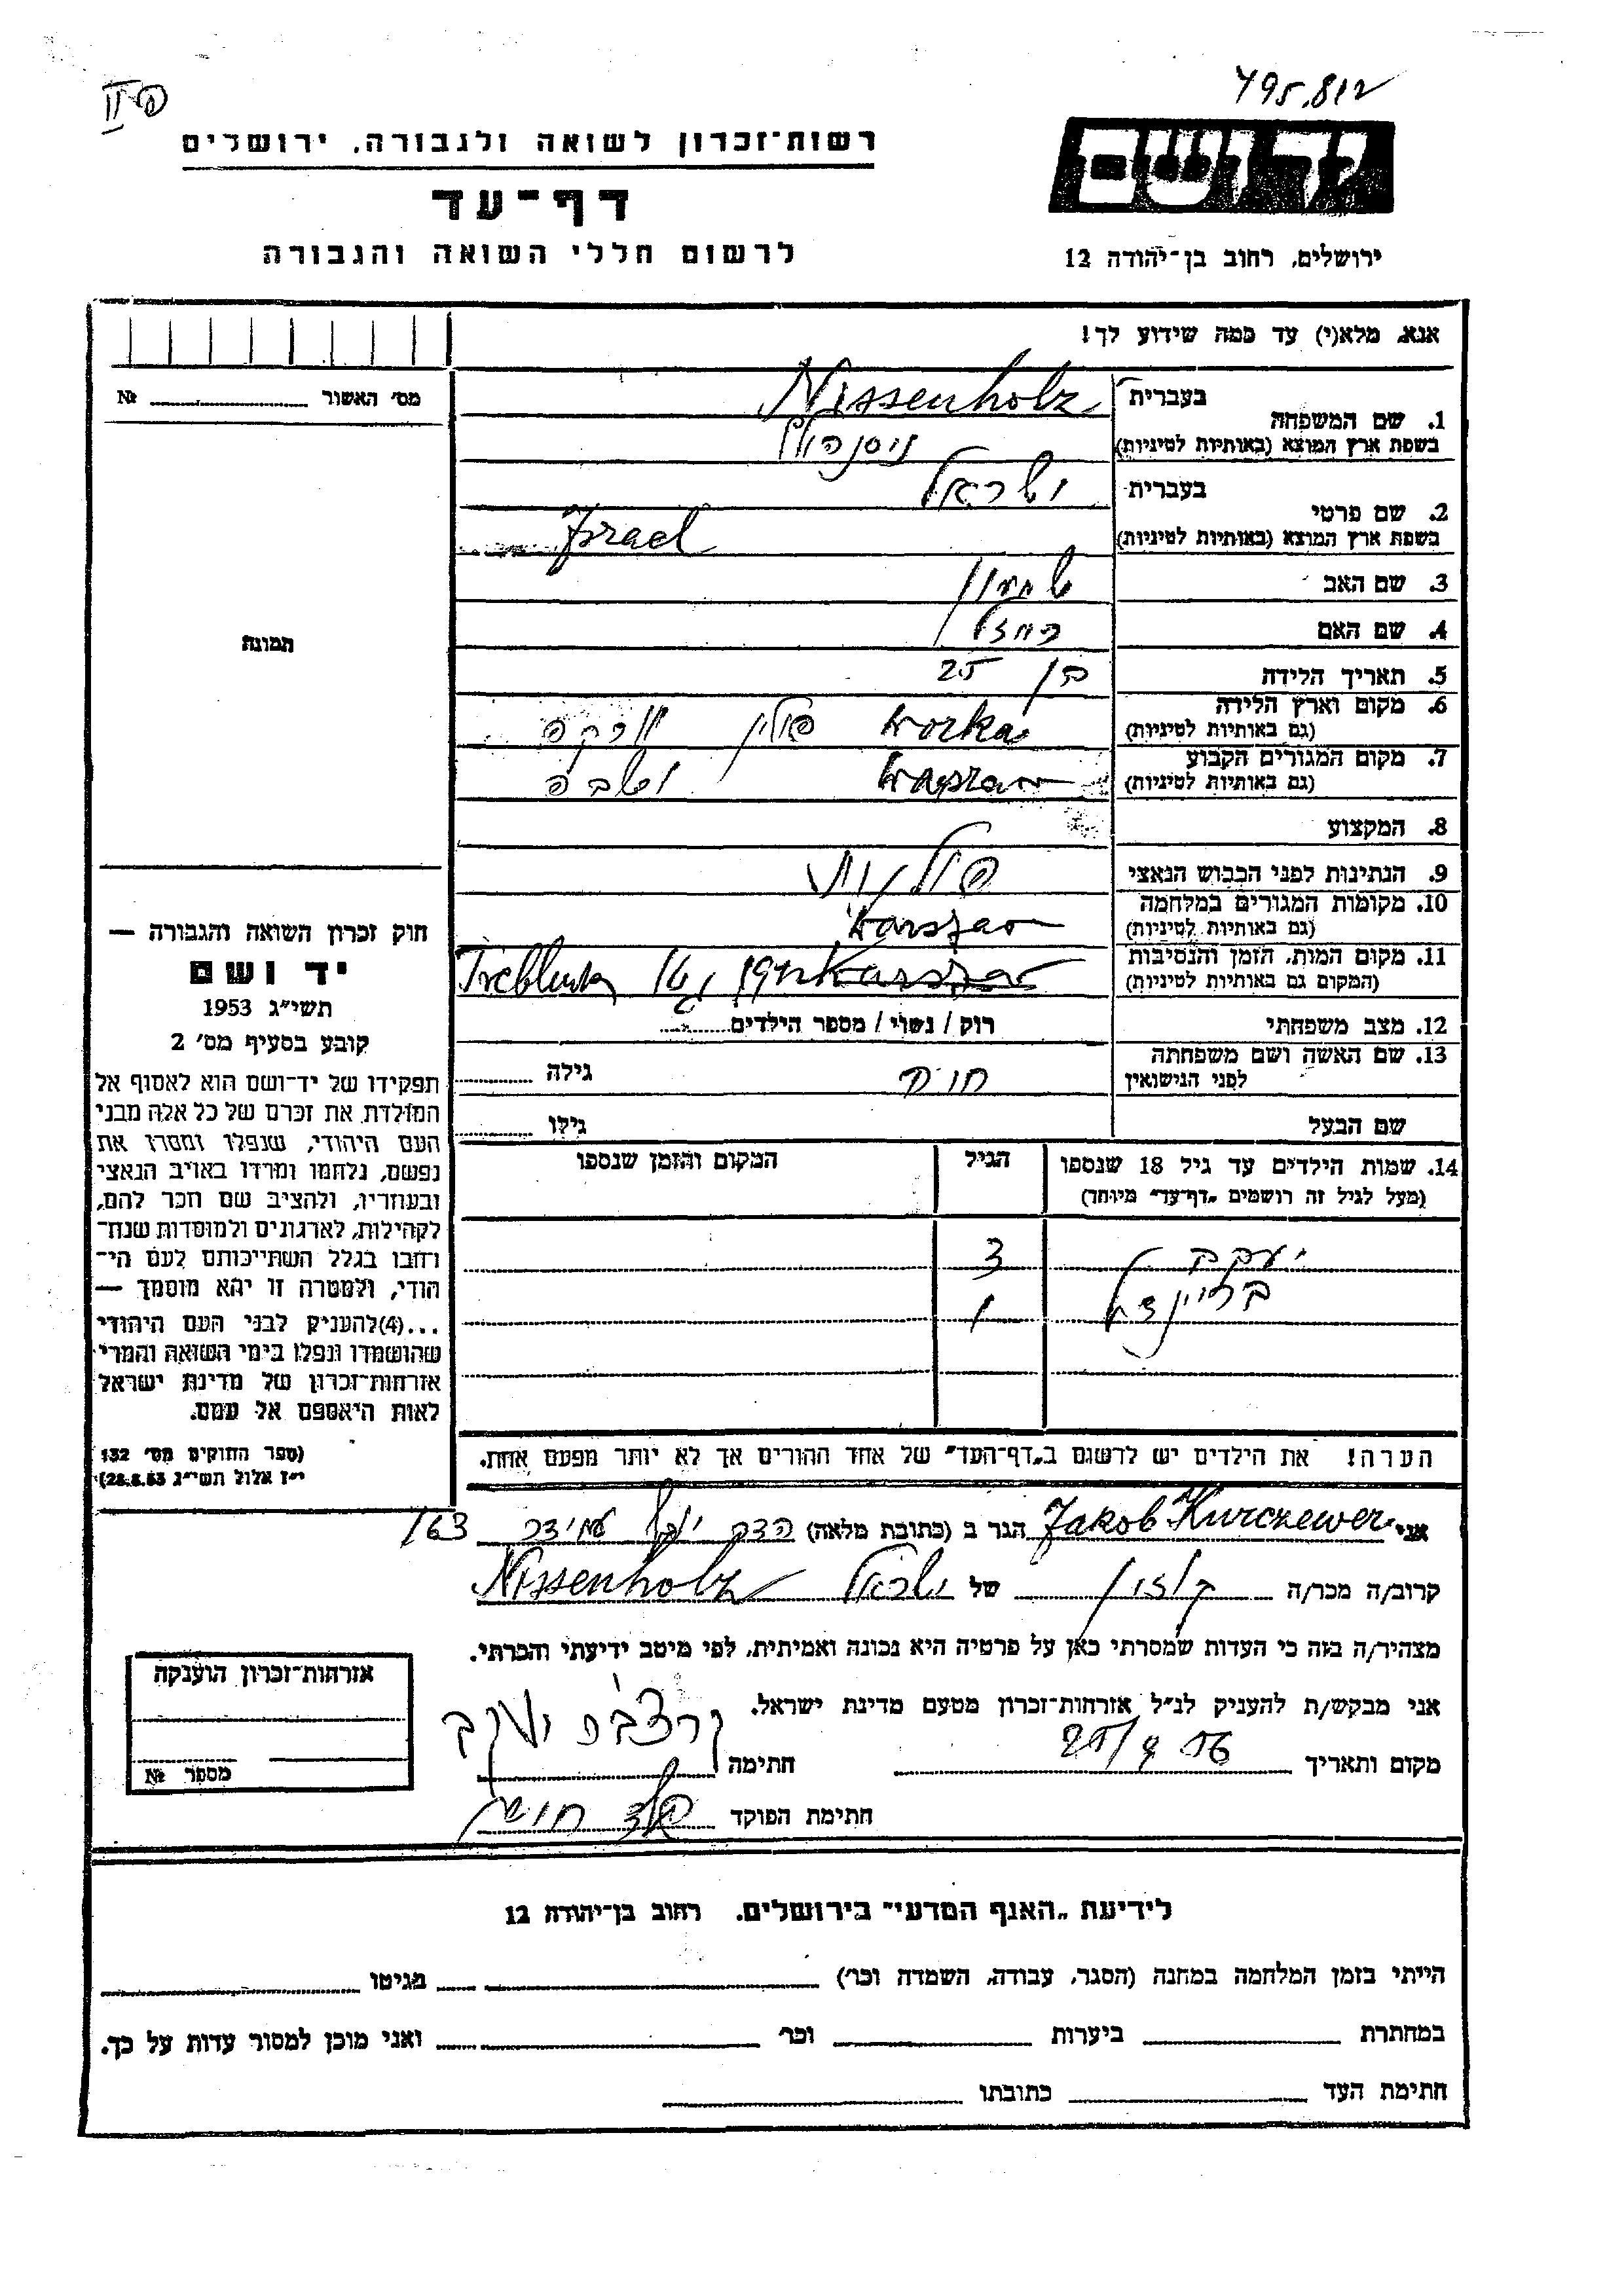 פ II
495.812
יד ושם
רשות־זכרון לשואה ולגבורה, ירושלים
דף־עד
לרשום חללי השואה והגבורה
ירושלים, רחוב בן־יהודה 12
אנא, מלא(י) עד כמה שידוע לך!
מס׳ האשור № 
תמונה
1. שם המשפחה בעברית Nissenholz
בשפת ארץ המוצא (באותיות לטיניות) ניסנהולץ
2. שם פרטי בעברית ישראל
בשפת ארץ המוצא (באותיות לטיניות) Izrael
3. שם האב שמעון
4. שם האם רחל
5. תאריך הלידה בן 25
6. מקום וארץ הלידה
(גם באותיות לטיניות) Worka פולין וורקה
7. מקום המגורים הקבוע
(גם באותיות לטיניות) Warszaw
8. המקצוע
9. הנתינות לפני הכבוש הנאצי פולנית
10. מקומות המגורים במלחמה
(גם באותיות לטיניות) Warszaw
11. מקום המות, הזמן והנסיבות
(המקום גם באותיות לטיניות) Warszaw
12. מצב משפחתי רוק / נשוי / מספר הילדים
13. שם האשה ושם משפחתה
לפני הנישואין גילה
שם הבעל גילו
14. שמות הילדים עד גיל 18 שנספו הגיל המקום והזמן שנספו
(מעל לגיל זה רושמים „דף־עד״ מיוחד)
יעקב 3
בריינדל 1
הערה! את הילדים יש לרשגם ב„דף־העד״ של אחד ההורים אך לא יותר מפעם אחת.
חוק זכרון השואה והגבורה —
יד ושם
תשי״ג 1953
קובע בסעיף מס׳ 2
תפקידו של יד־ושם הוא לאסוף אל
המולדת את זכרם של כל אלה מבני
העם היהודי, שנפלו ומסרו את
נפשם, נלחמו ומרדו באויב הנאצי
ובעוזריו, ולהציב שם וזכר להם,
לקהילות, לארגונים ולמוסדות שנח־
רחבו בגלל השתייכותם לעם הי־
הודי, ולמטרה זו יהא מוסמך —
...(4)להעניק לבני העם היהודי
שהושמדו ונפלו בימי השואה והמרי
אזרחות־זכרון של מדינת ישראל
לאות היאספם אל עמם.
(ספר החוקים מס׳ 132
י״ז אלול תשי״ג 28.8.53)
אני Jakob Kurczewer הגר ב (כתובת מלאה) עמידר 163
קרוב/ה מכר/ה של ישראל Nissenholz
מצהיר/ה בזה כי העדות שמסרתי כאן על פרטיה היא נכונה ואמיתית, לפי מיטב ידיעתי והכרתי.
אני מבקש/ת להעניק לנ״ל אזרחות־זכרון מטעם מדינת ישראל.
מקום ותאריך חתימה
חתימת הפוקד
אזרחות־זכרון הוענקה
מספר №
לידיעת „האגף המדעי״ בירושלים, רחוב בן־יהודה 12
הייתי בזמן המלחמה במחנה (הסגר, עבודה, השמדה וכו׳) בגיטו
במחתרת ביערות וכו׳ ואני מוכן למסור עדות על כך.
חתימת העד כתובתו